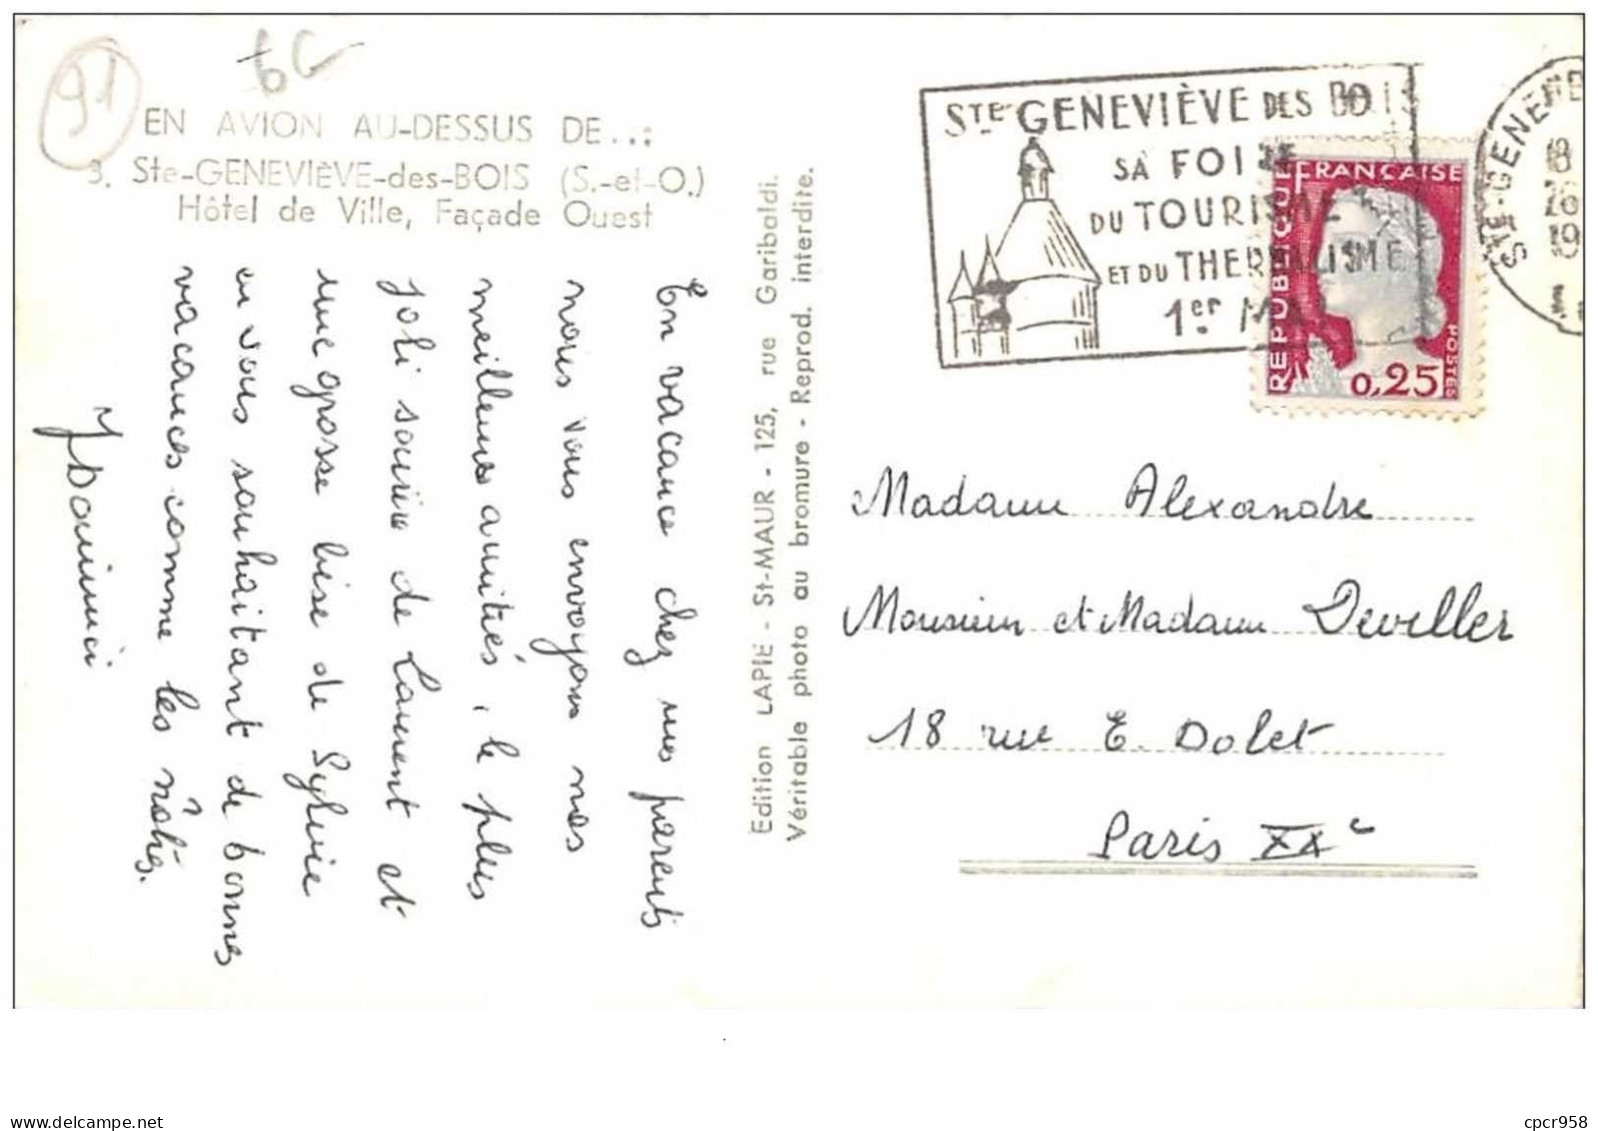 91
6G
EN AVION AU-DESSUS DE...:
3. Ste-GENEVIÈVE-des-BOIS (S.-et-O.)
Hôtel de Ville, Façade Ouest
En vacance chez mes parents
nous vous envoyons nos
meilleures amitiés, le plus
joli sourire de Laurent et
une grosse bise de Sylvie
en vous souhaitant de bonnes
vacances comme les nôtres.
Edition LAPIE - St-MAUR - 125, rue Garibaldi.
Véritable photo au bromure - Reprod. interdite.
STE GENEVIÈVE DES BOIS
SA FOIRE
DU TOURISME
ET DU THERMALISME
1er MAI
STE-GENEVIE
18
26
19
RÉPUBLIQUE FRANÇAISE
POSTES
0,25
Madame Alexandre
Monsieur et Madame Deviller
18 rue E. Dolet
Paris XXe
www.delcampe.net
cpcr958